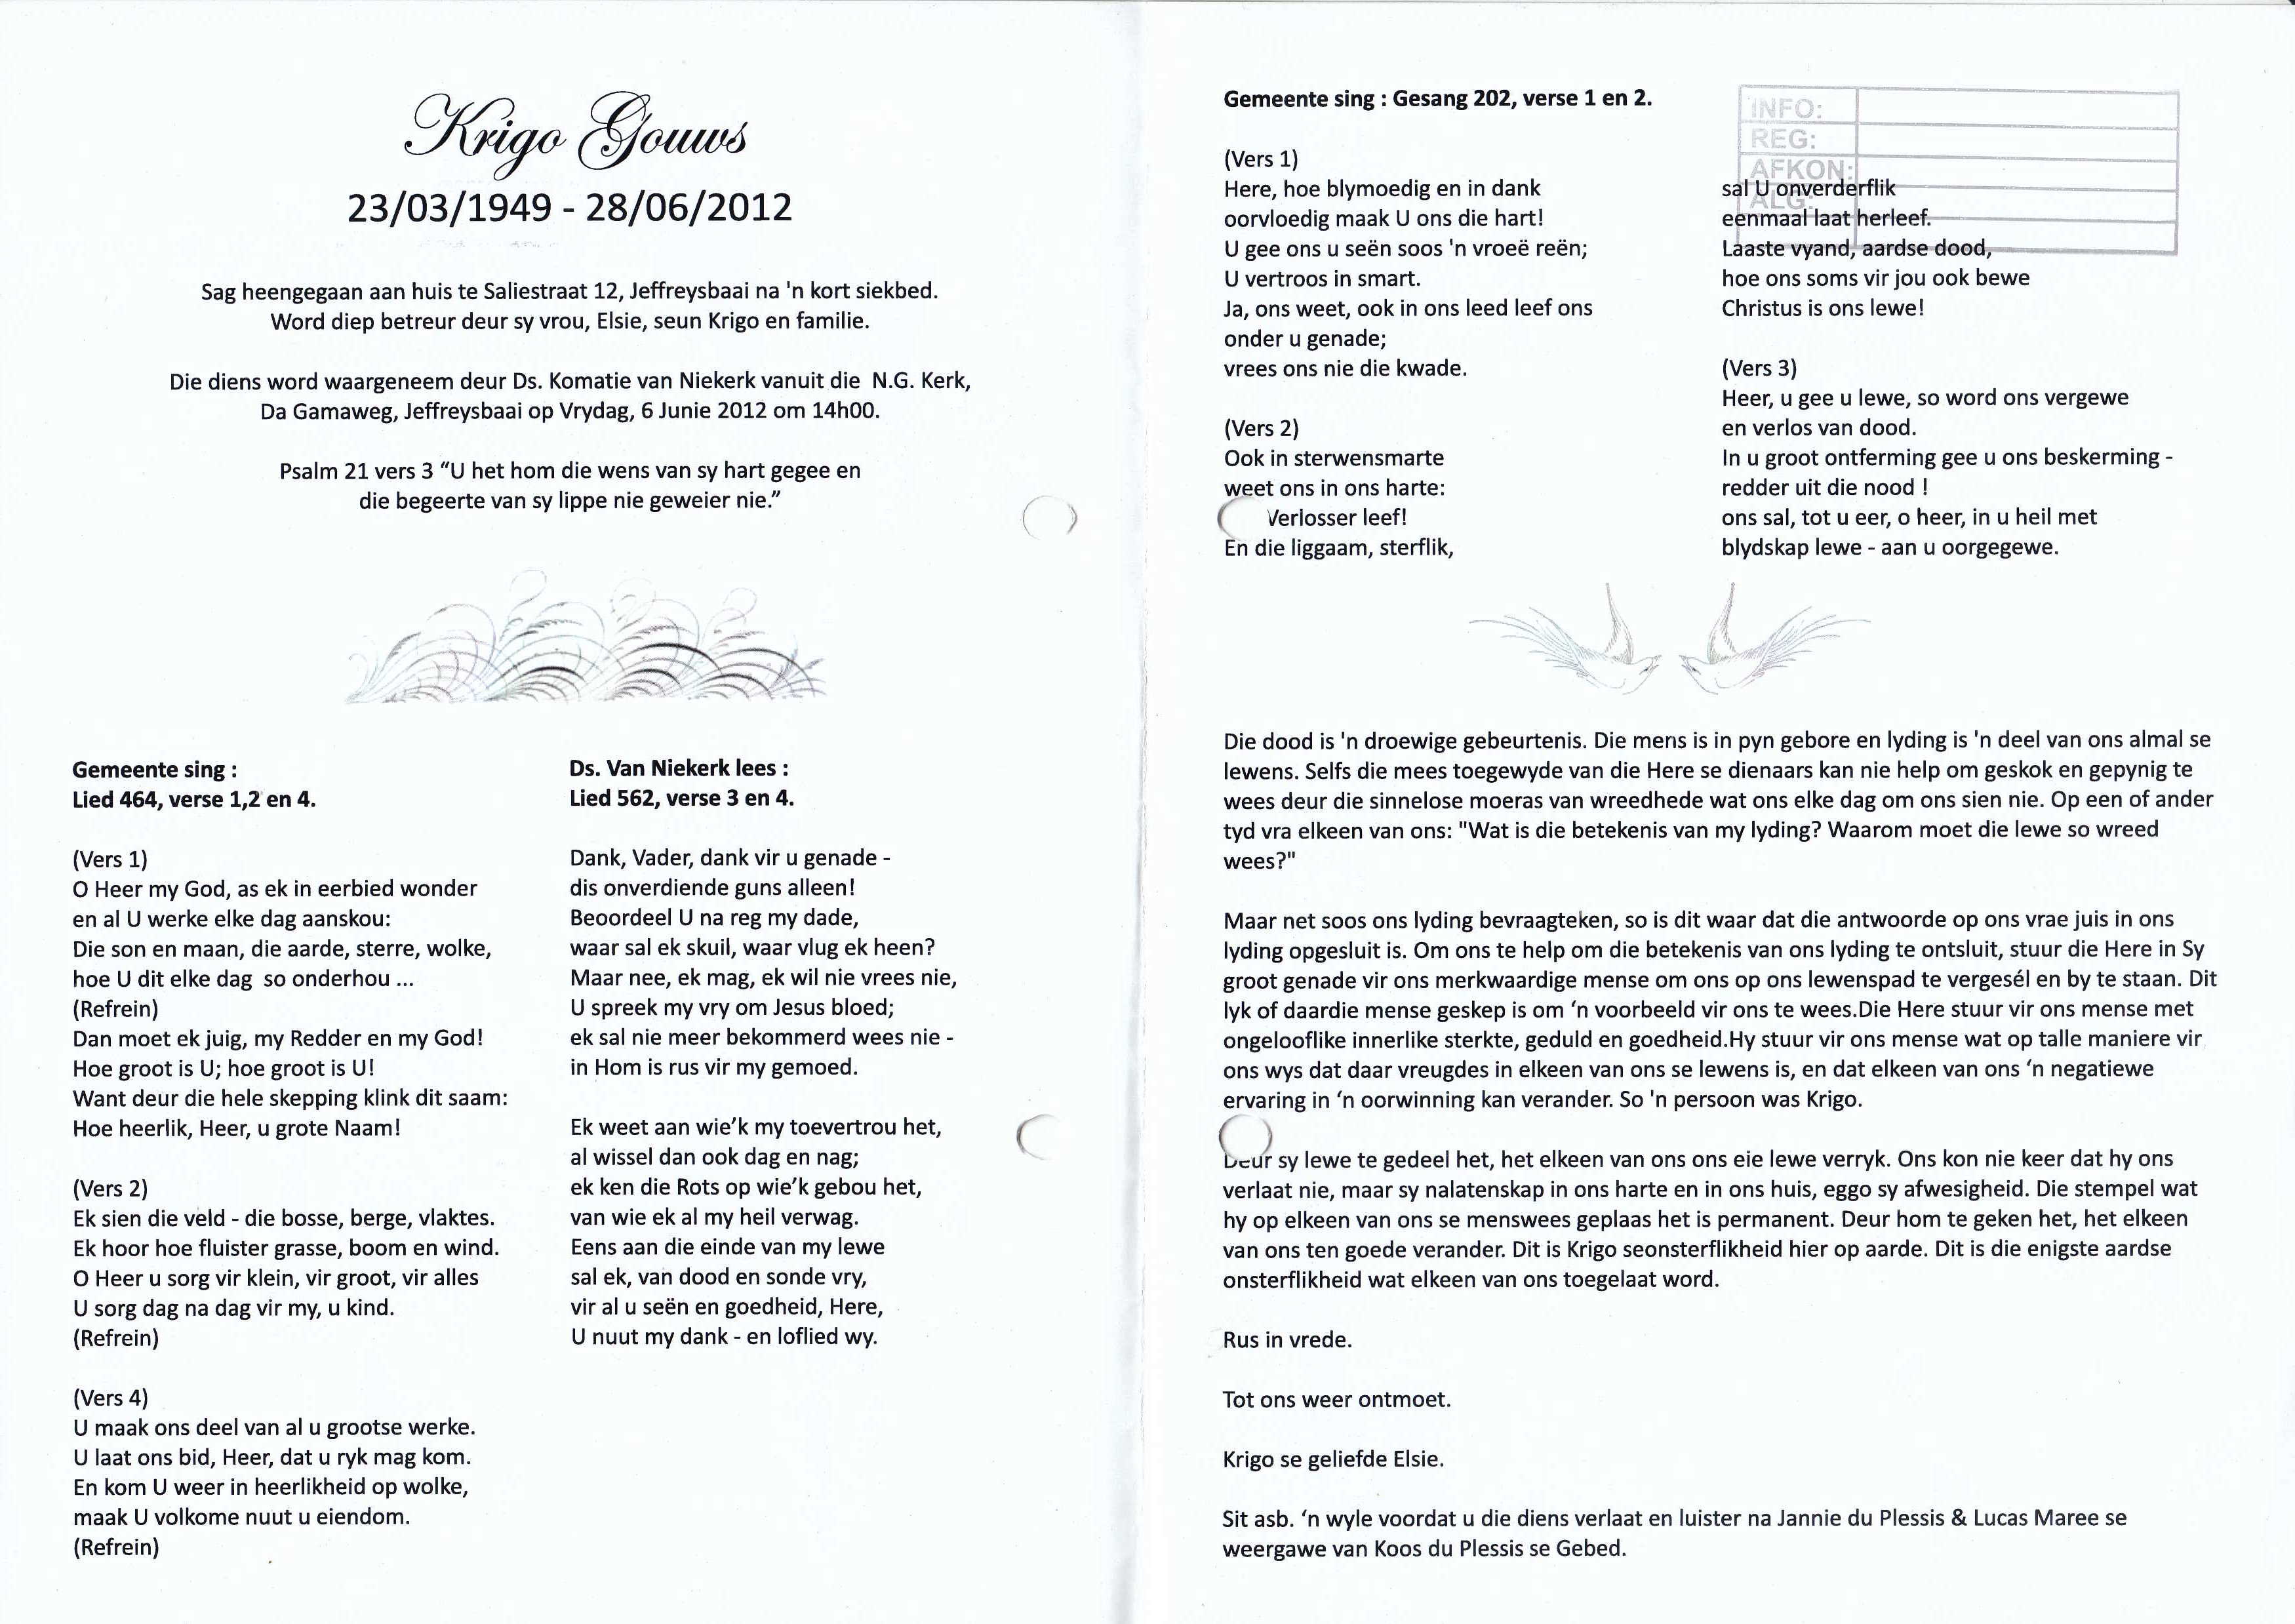 Krigo Gouws
23/03/1949 - 28/06/2012
Sag heengegaan aan huis te Saliestraat 12, Jeffreysbaai na 'n kort siekbed.
Word diep betreur deur sy vrou, Elsie, seun Krigo en familie.
Die diens word waargeneem deur Ds. Komatie van Niekerk vanuit die N.G. Kerk,
Da Gamaweg, Jeffreysbaai op Vrydag, 6 Junie 2012 om 14h00.
Psalm 21 vers 3 “U het hom die wens van sy hart gegee en
die begeerte van sy lippe nie geweier nie.”
Gemeente sing :
Lied 464, verse 1,2 en 4.
(Vers 1)
O Heer my God, as ek in eerbied wonder
en al U werke elke dag aanskou:
Die son en maan, die aarde, sterre, wolke,
hoe U dit elke dag so onderhou ...
(Refrein)
Dan moet ek juig, my Redder en my God!
Hoe groot is U; hoe groot is U!
Want deur die hele skepping klink dit saam:
Hoe heerlik, Heer, u grote Naam!
(Vers 2)
Ek sien die veld - die bosse, berge, vlaktes.
Ek hoor hoe fluister grasse, boom en wind.
O Heer u sorg vir klein, vir groot, vir alles
U sorg dag na dag vir my, u kind.
(Refrein)
(Vers 4)
U maak ons deel van al u grootse werke.
U laat ons bid, Heer, dat u ryk mag kom.
En kom U weer in heerlikheid op wolke,
maak U volkome nuut u eiendom.
(Refrein)
Ds. Van Niekerk lees :
Lied 562, verse 3 en 4.
Dank, Vader, dank vir u genade -
dis onverdiende guns alleen!
Beoordeel U na reg my dade,
waar sal ek skuil, waar vlug ek heen?
Maar nee, ek mag, ek wil nie vrees nie,
U spreek my vry om Jesus bloed;
ek sal nie meer bekommerd wees nie -
in Hom is rus vir my gemoed.
Ek weet aan wie’k my toevertrou het,
al wissel dan ook dag en nag;
ek ken die Rots op wie’k gebou het,
van wie ek al my heil verwag.
Eens aan die einde van my lewe
sal ek, van dood en sonde vry,
vir al u seën en goedheid, Here,
U nuut my dank - en loflied wy.
Gemeente sing : Gesang 202, verse 1 en 2.
(Vers 1)
Here, hoe blymoedig en in dank
oorvloedig maak U ons die hart!
U gee ons u seën soos 'n vroeë reën;
U vertroos in smart.
Ja, ons weet, ook in ons leed leef ons
onder u genade;
vrees ons nie die kwade.
(Vers 2)
Ook in sterwensmarte
weet ons in ons harte:
Verlosser leef!
En die liggaam, sterflik,
INFO:
REG:
AFKON:
ALG:
sal U onverderflik
eenmaal laat herleef.
Laaste vyand, aardse dood,
hoe ons soms vir jou ook bewe
Christus is ons lewe!
(Vers 3)
Heer, u gee u lewe, so word ons vergewe
en verlos van dood.
In u groot ontferming gee u ons beskerming -
redder uit die nood !
ons sal, tot u eer, o heer, in u heil met
blydskap lewe - aan u oorgegewe.
Die dood is 'n droewige gebeurtenis. Die mens is in pyn gebore en lyding is 'n deel van ons almal se
lewens. Selfs die mees toegewyde van die Here se dienaars kan nie help om geskok en gepynig te
wees deur die sinnelose moeras van wreedhede wat ons elke dag om ons sien nie. Op een of ander
tyd vra elkeen van ons: "Wat is die betekenis van my lyding? Waarom moet die lewe so wreed
wees?"
Maar net soos ons lyding bevraagteken, so is dit waar dat die antwoorde op ons vrae juis in ons
lyding opgesluit is. Om ons te help om die betekenis van ons lyding te ontsluit, stuur die Here in Sy
groot genade vir ons merkwaardige mense om ons op ons lewenspad te vergesél en by te staan. Dit
lyk of daardie mense geskep is om ‘n voorbeeld vir ons te wees.Die Here stuur vir ons mense met
ongelooflike innerlike sterkte, geduld en goedheid.Hy stuur vir ons mense wat op talle maniere vir
ons wys dat daar vreugdes in elkeen van ons se lewens is, en dat elkeen van ons ‘n negatiewe
ervaring in ‘n oorwinning kan verander. So 'n persoon was Krigo.
Deur sy lewe te gedeel het, het elkeen van ons ons eie lewe verryk. Ons kon nie keer dat hy ons
verlaat nie, maar sy nalatenskap in ons harte en in ons huis, eggo sy afwesigheid. Die stempel wat
hy op elkeen van ons se menswees geplaas het is permanent. Deur hom te geken het, het elkeen
van ons ten goede verander. Dit is Krigo seonsterflikheid hier op aarde. Dit is die enigste aardse
onsterflikheid wat elkeen van ons toegelaat word.
Rus in vrede.
Tot ons weer ontmoet.
Krigo se geliefde Elsie.
Sit asb. ‘n wyle voordat u die diens verlaat en luister na Jannie du Plessis & Lucas Maree se
weergawe van Koos du Plessis se Gebed.